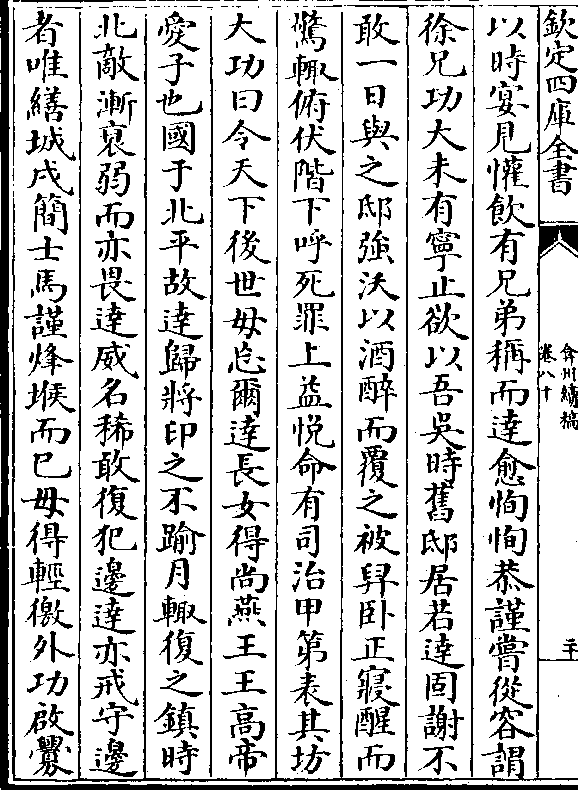 欽定四庫全書
弇州續稿
卷八十
二十
以時宴見懽飲有兄弟稱而達愈恂恂恭謹嘗從容謂
徐兄功大未有寧止欲以吾吳時舊邸居若達固謝不
敢一日與之邸強沃以酒醉而覆之被舁卧正寢醒而
驚輙俯伏階下呼死罪上益悅命有司治甲第表其坊
大功曰令天下後世毋忘爾達長女得尚燕王王髙帝
愛子也國于北平故達歸將印之不踰月輙復之鎮時
北敵漸衰弱而亦畏達威名稀敢復犯邊達亦戒守邊
者唯繕城戍簡士馬謹烽堠而已毋得輕徼外功啟釁